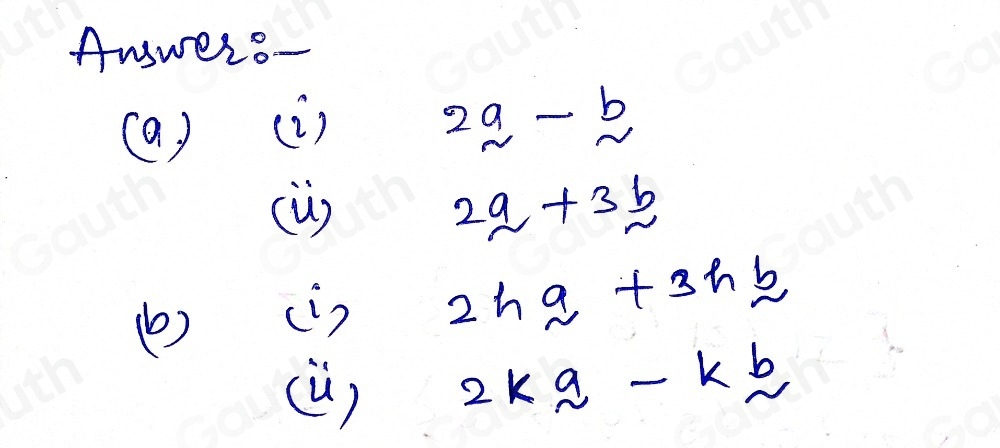 Answer:-
(a) (i) 2a̰ - b̰
(ii) 2a̰ + 3b̰
(b) (i) 2ha̰ + 3hb̰
(ii) 2ka̰ - kb̰